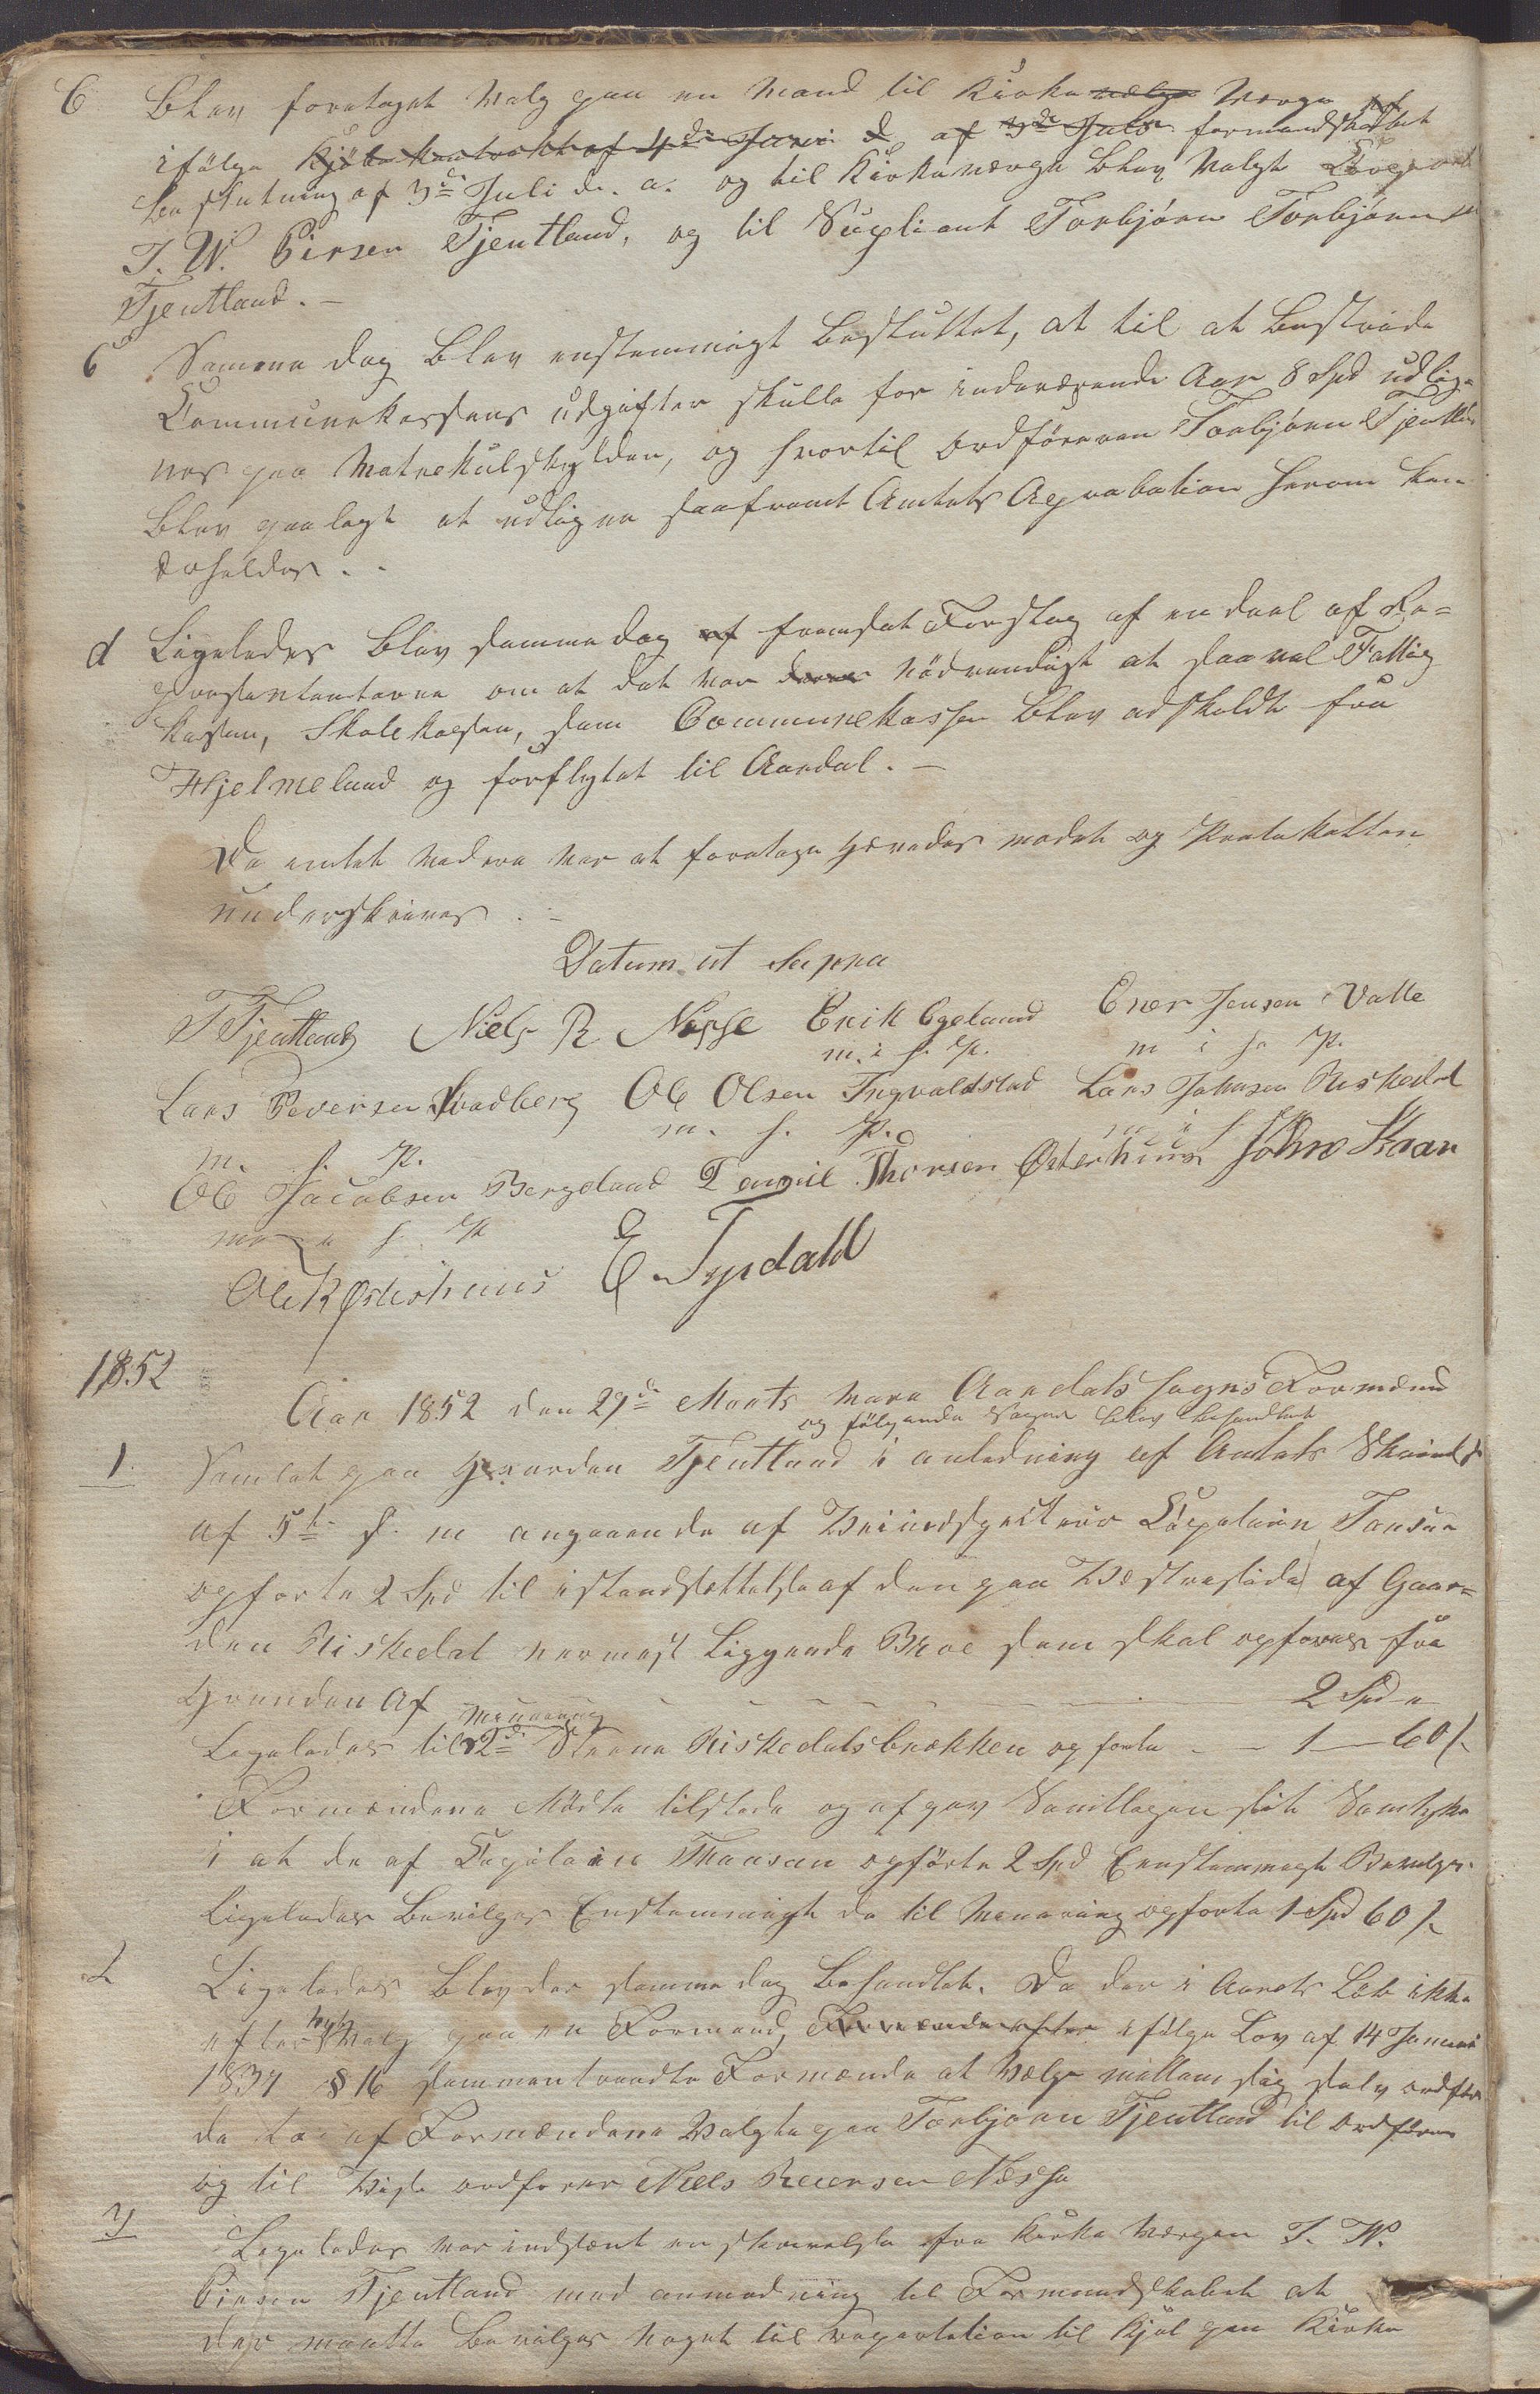 b Blev foretaget Valg paa en Mand til Kirke vælge Værge
ifölge Kjöbe kontrakt af 4de Juni d. af 3de Juli formandskabet
beslutning af 3de Juli d. a. og til Kirkeværge blev Valgt
T. W. Pirsen Tjentland, og til Supliant Torbjörn Torbjörnsen
Tjentland. –
c Samme dag blev enstemmigt besluttet, at til at bestride
Communekassens udgifter skulle for indeværende Aar 8 Spd udlig-
nes paa Matrekulskylden, og hvortil ordföreren Torbjörn Tjentland
blev paalagt at udligne saafremt Amtets Aprobation herom kan
erholdes. -
d Ligeledes blev samme dag af fremsat Forslag af en deel af Re-
presentanterne om at det var deres nödvendigt at saavel Fattig
kassen, Skolekassen, som Communekassen blev adskeldt fra
Hjelmeland og forflytet til Aardal. –
Da intet videre var at foretage hævedes modet og Protokollen
underskrives. –
Datum ut Supra
T Tjentland Niels R. Nesse Erik Egeland Ener Jensen Valle
m. i f. P. m i f. P.
Lars Peversen Svadberg Ole Olsen Ingvaldstad Lars Johnsen Riskedal
m. f. P. m. f. P. m i f
Ole Jacobsen Bergeland Tengil Thorsen Østerhuus John Skaar
m f P
Ole R Østerhuus E. Tysdahl
1852
Aar 1852 den 29de Marts vare Aardals Sogns Formænd
og fölgende Sager blev behandlet
1. Samlet paa Gaarden Tjentland i anledning af Amtets Skrivelse
af 5te f. m angaaende af Veiinspecteur Capitain Tonsen
opforte 2 Spd til istandsættelse af den paa Vestreside af Gaar-
den Riskedal nermest Liggende Broe som skal opfores fra
Grunden af 2 Spd "
Muurning
Legeledes til 2de Steene Riskedalsbrækken opforte – 1 – 60 s.
Formændene Mödte tilstede og afgav Samtlegen sit Samtykke
i at de af Capitain Thonsen opförte 2 Spd Eenstemmegt Bevilges.
Ligeledes bevilges Enstemmigt de til Muurning opforte 1 Spd 60 s.
2 Ligeledes blev der samme dag behandlet. Da der i Aarets Löb ikke
nyt
efter Valg paa en Formand, Formænde efter ifölge Lov af 14 Januar
1837 § 16 sammentraadte Formænde at Vælge mellem sig selv ordför
da er af Formændene Valgte paa Torbjörn Tjentland til Ordförer
og til Vise ordforer Niels Reiersen Nesse
3 Legeledes var indsent en skrivelse fra Kirke Værgen T. W.
Pirsen Tjentland med anmodning til Formandskabet at
der maatte bevilges noget til reparation til Kjöl paa Kirke